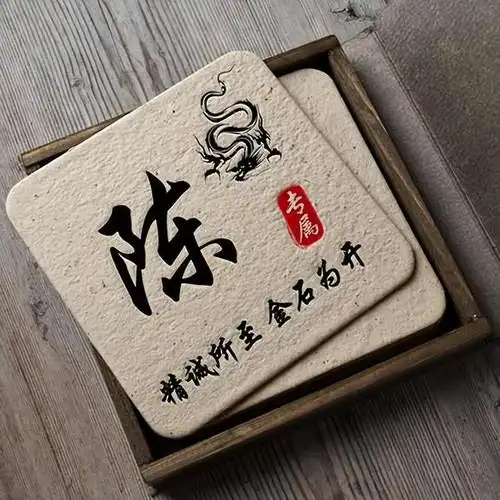 陈
专属
精诚所至 金石为开